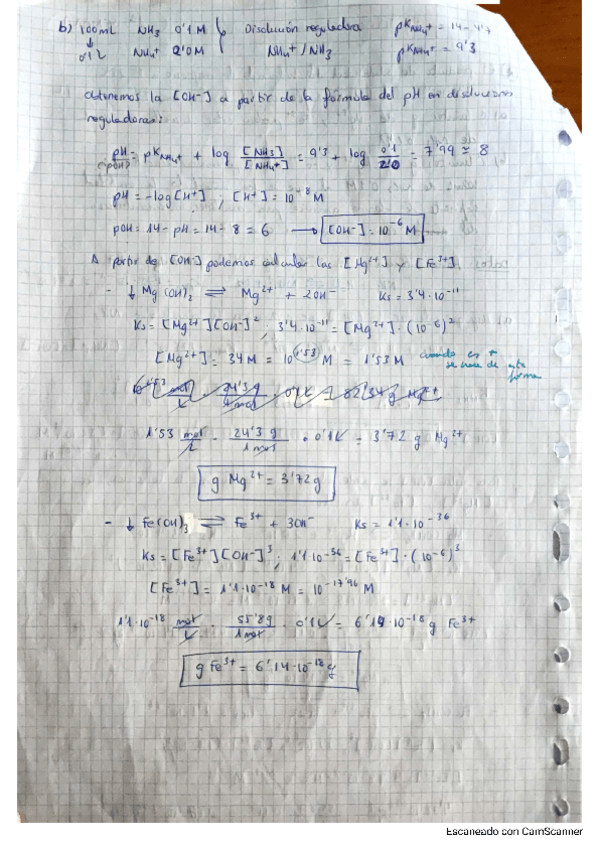 b) 100mL NH3 0'1 M } Disolución reguladora pKNH4+ = 14 - 4'7
↓
0'1 L NH4+ 2'0M NH4+ / NH3 pKNH4+ = 9'3
Obtenemos la [OH-] a partir de la fórmula del pH en disoluciones
reguladoras:
pH = pKNH4+ + log [NH3]/[NH4+] = 9'3 + log 0'1/2'0 = 7'99 ≈ 8
pH = -log[H+] ; [H+] = 10^-8 M
pOH = 14 - pH = 14 - 8 = 6 → [OH-] = 10^-6 M
A partir de [OH-] podemos calcular las [Mg2+] y [Fe3+]
- ↓ Mg(OH)2 ⇌ Mg2+ + 2OH- Ks = 3'4·10^-11
Ks = [Mg2+][OH-]^2 ; 3'4·10^-11 = [Mg2+]·(10^-6)^2
[Mg2+] = 34 M = 10^1'53 M = 1'53 M cuando es +
se hace de esta
forma
1'53 mol/L · 24'3 g/1 mol · 0'1 L = 3'72 g Mg2+
g Mg2+ = 3'72 g
- ↓ Fe(OH)3 ⇌ Fe3+ + 3OH- Ks = 1'1·10^-36
Ks = [Fe3+][OH-]^3 ; 1'1·10^-36 = [Fe3+]·(10^-6)^3
[Fe3+] = 1'1·10^-18 M = 10^-17'96 M
1'1·10^-18 mol/L · 55'8g/1 mol · 0'1 L = 6'14·10^-18 g Fe3+
g Fe3+ = 6'14·10^-18 g
Escaneado con CamScanner